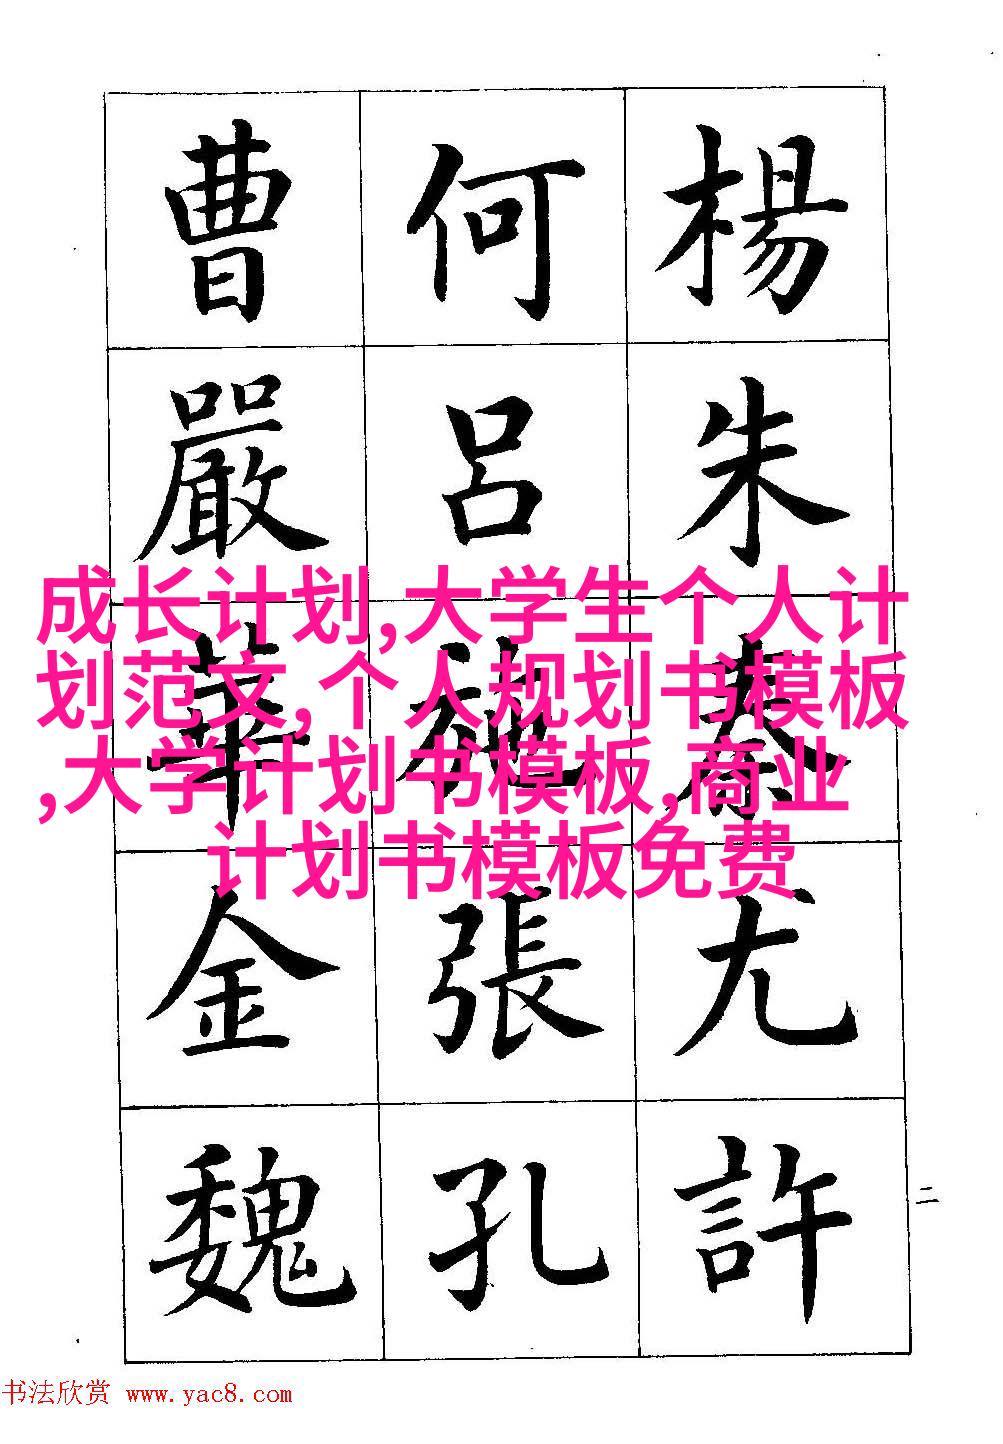 楊朱秦尤許
何呂施張孔
曹嚴華金魏
二
成长计划,大学生个人计
划范文,个人规划书模板
,大学计划书模板,商业
计划书模板免费
书法欣赏 www.yac8.com